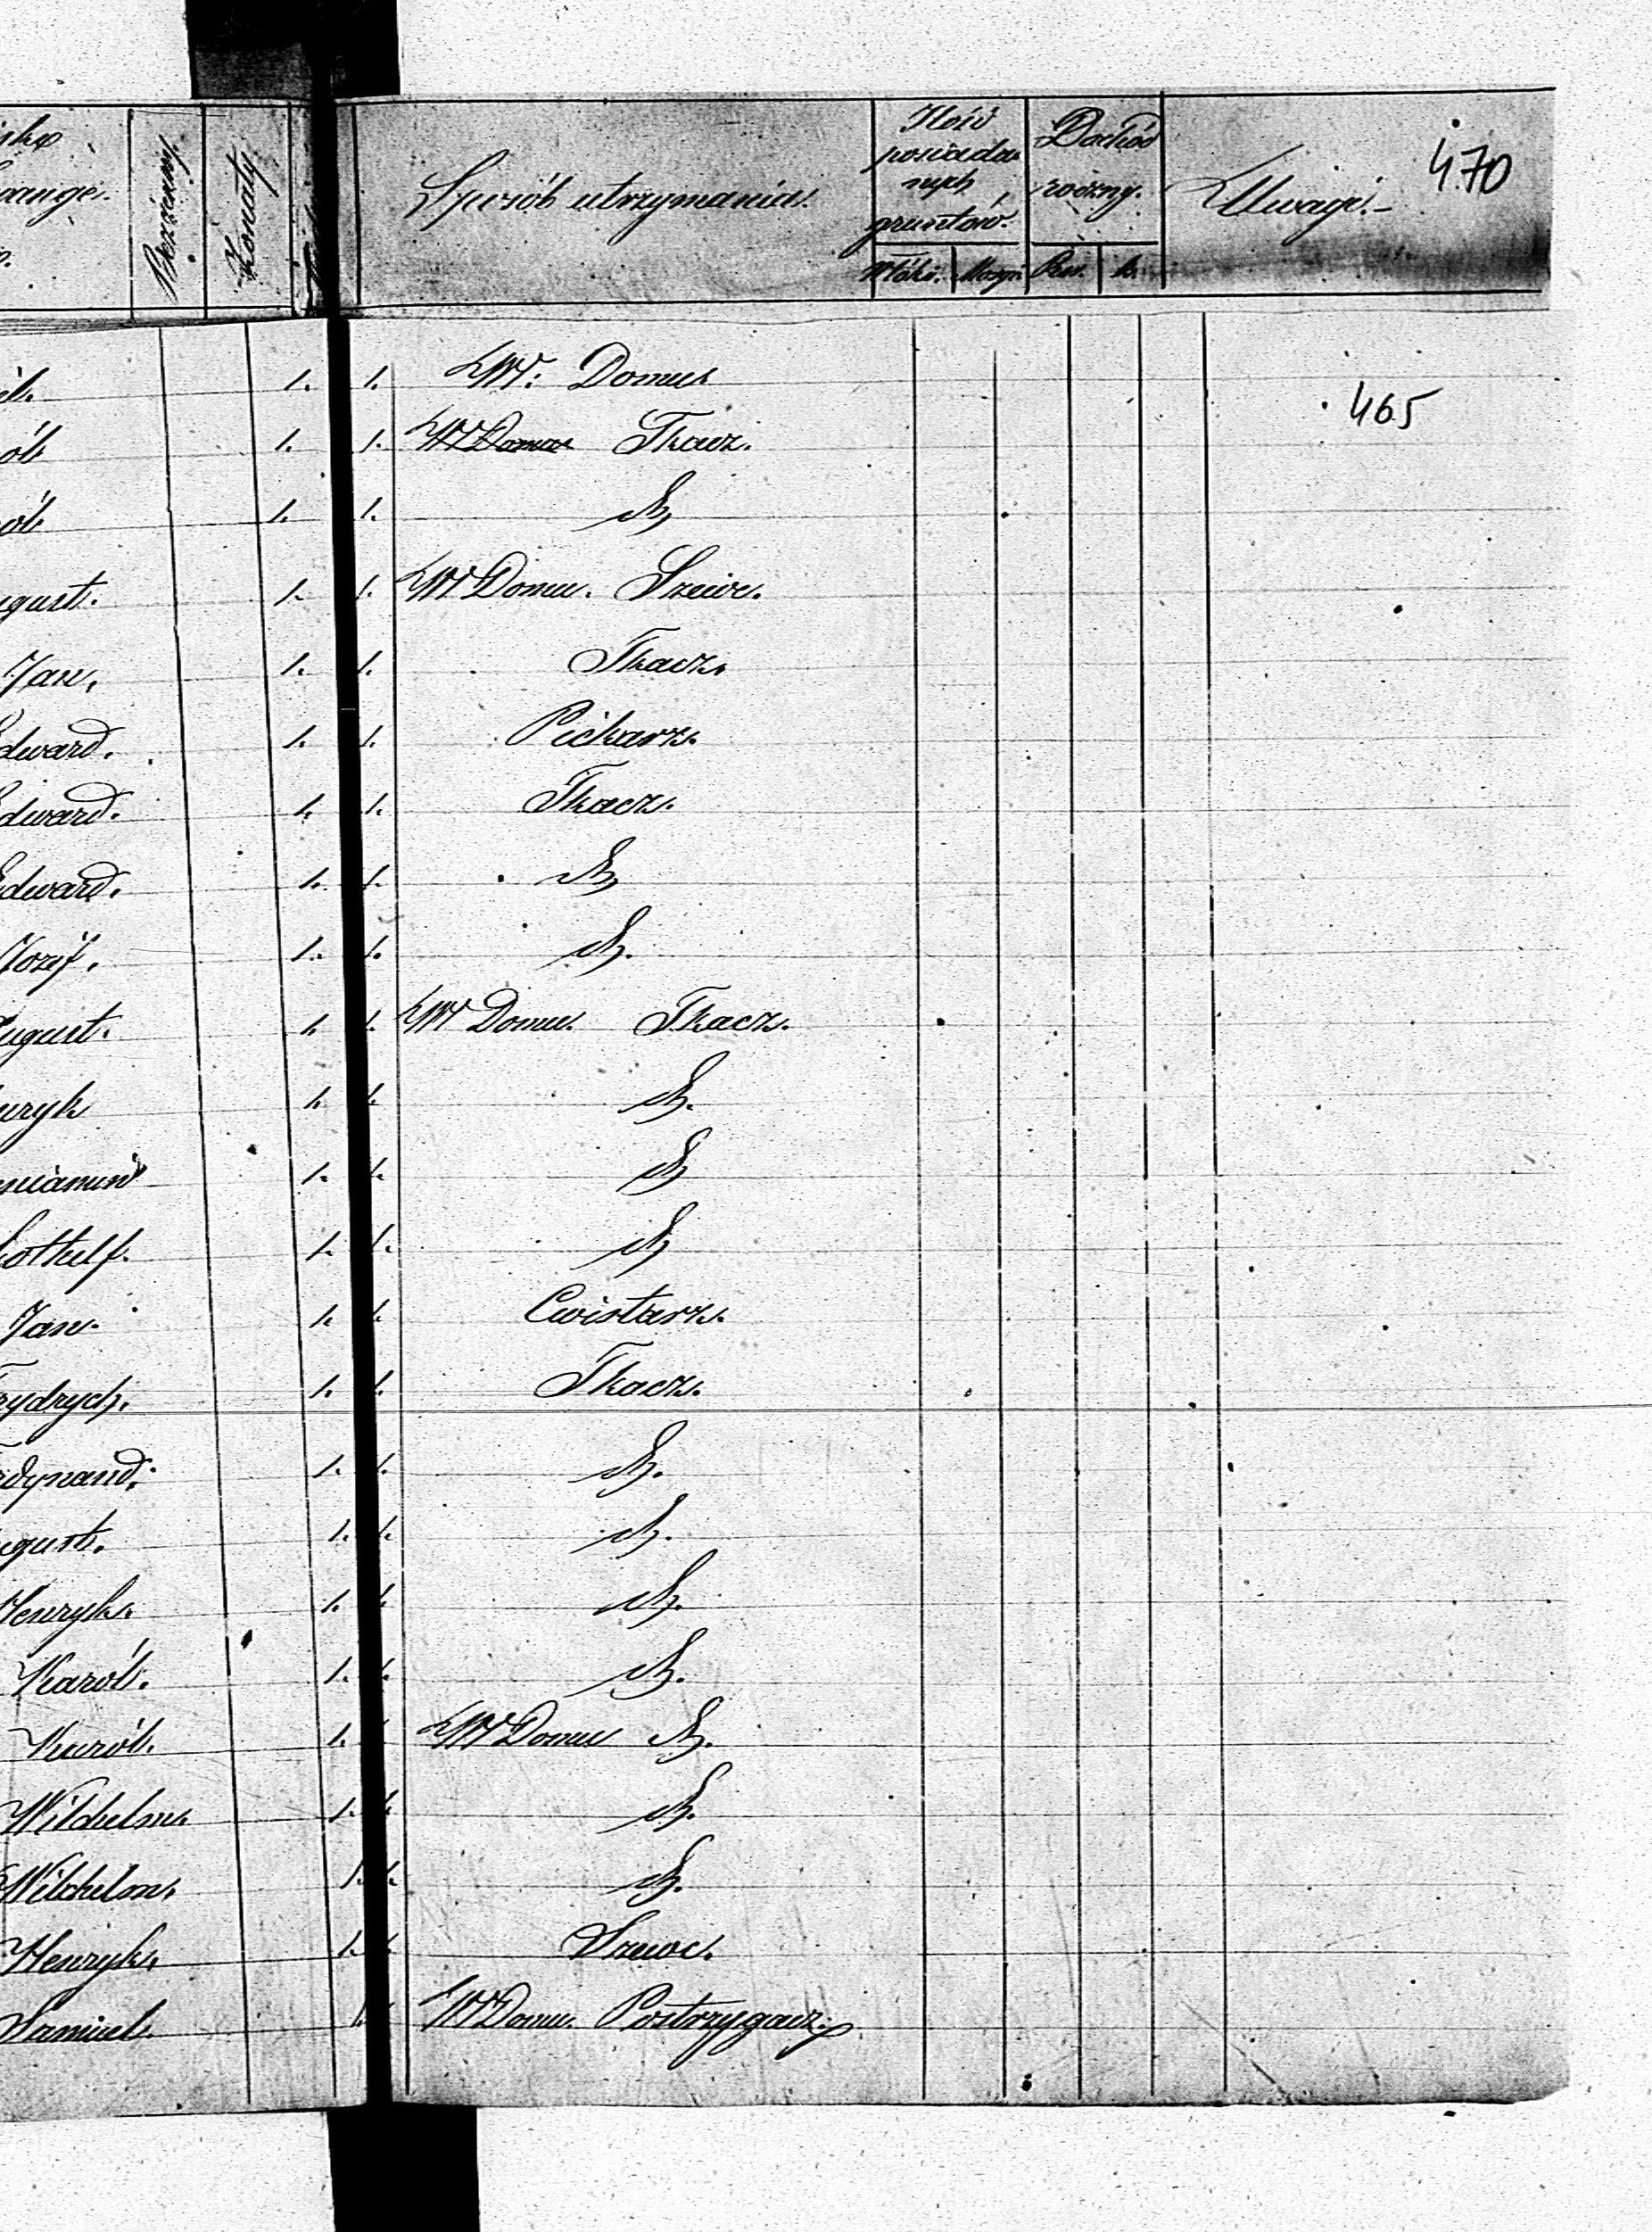 Bezżenny. Żonaty Sposób utrzymania. Ilość posiadanych gruntów. Dochód roczny. Uwagi.- 470
Włók. Morgi Rsr. k.
1. 1. Wł: Domu
465
1. 1. Wł Domu Tkacz.
1. 1. db
ugust. 1. 1. Wł Domu. Szewc.
Jan. 1. 1. Tkacz.
Edward. 1. 1. Piekarz.
Edward. 1. 1. Tkacz.
Edward. 1. 1. db
Józef. 1. 1. db.
August. 1. 1. Wł Domu. Tkacz.
nryk 1. 1. db.
1. 1. db
Gothelf. 1. 1. db
Jan. 1. 1. Cwistarz.
Frydrych. 1. 1. Tkacz.
rdynand. 1. 1. db.
ugust. 1. 1. db.
Henryk. 1. 1. db.
Karól. 1. 1. db.
Karól. 1. 1. Wł Domu db.
Wilchelm. 1. 1. db.
Wilchelm. 1. 1. db.
Henryk. 1. 1. Szewc.
Samuel. 1. Wł Domu. Postrzygacz.